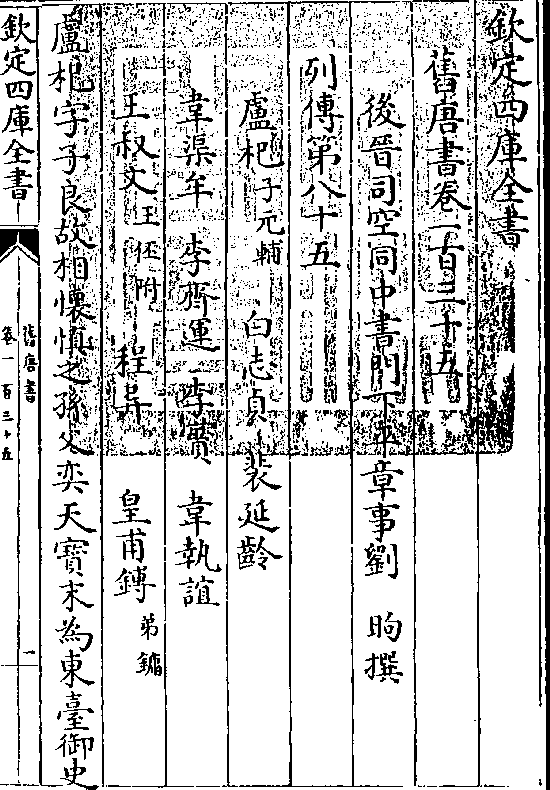 欽定四庫全書
舊唐書卷一百三十五
後晉司空同中書門下平章事劉 昫撰
列傳第八十五
盧杞子元輔 白志貞 裴延齡
韋渠牟 李齊運 李實 韋執誼
王叔文王伾附 程异 皇甫鎛弟鏞
盧杞字子良故相懷慎之孫父奕天寶末為東臺御史
欽定四庫全書
舊唐書
卷一百三十五
一